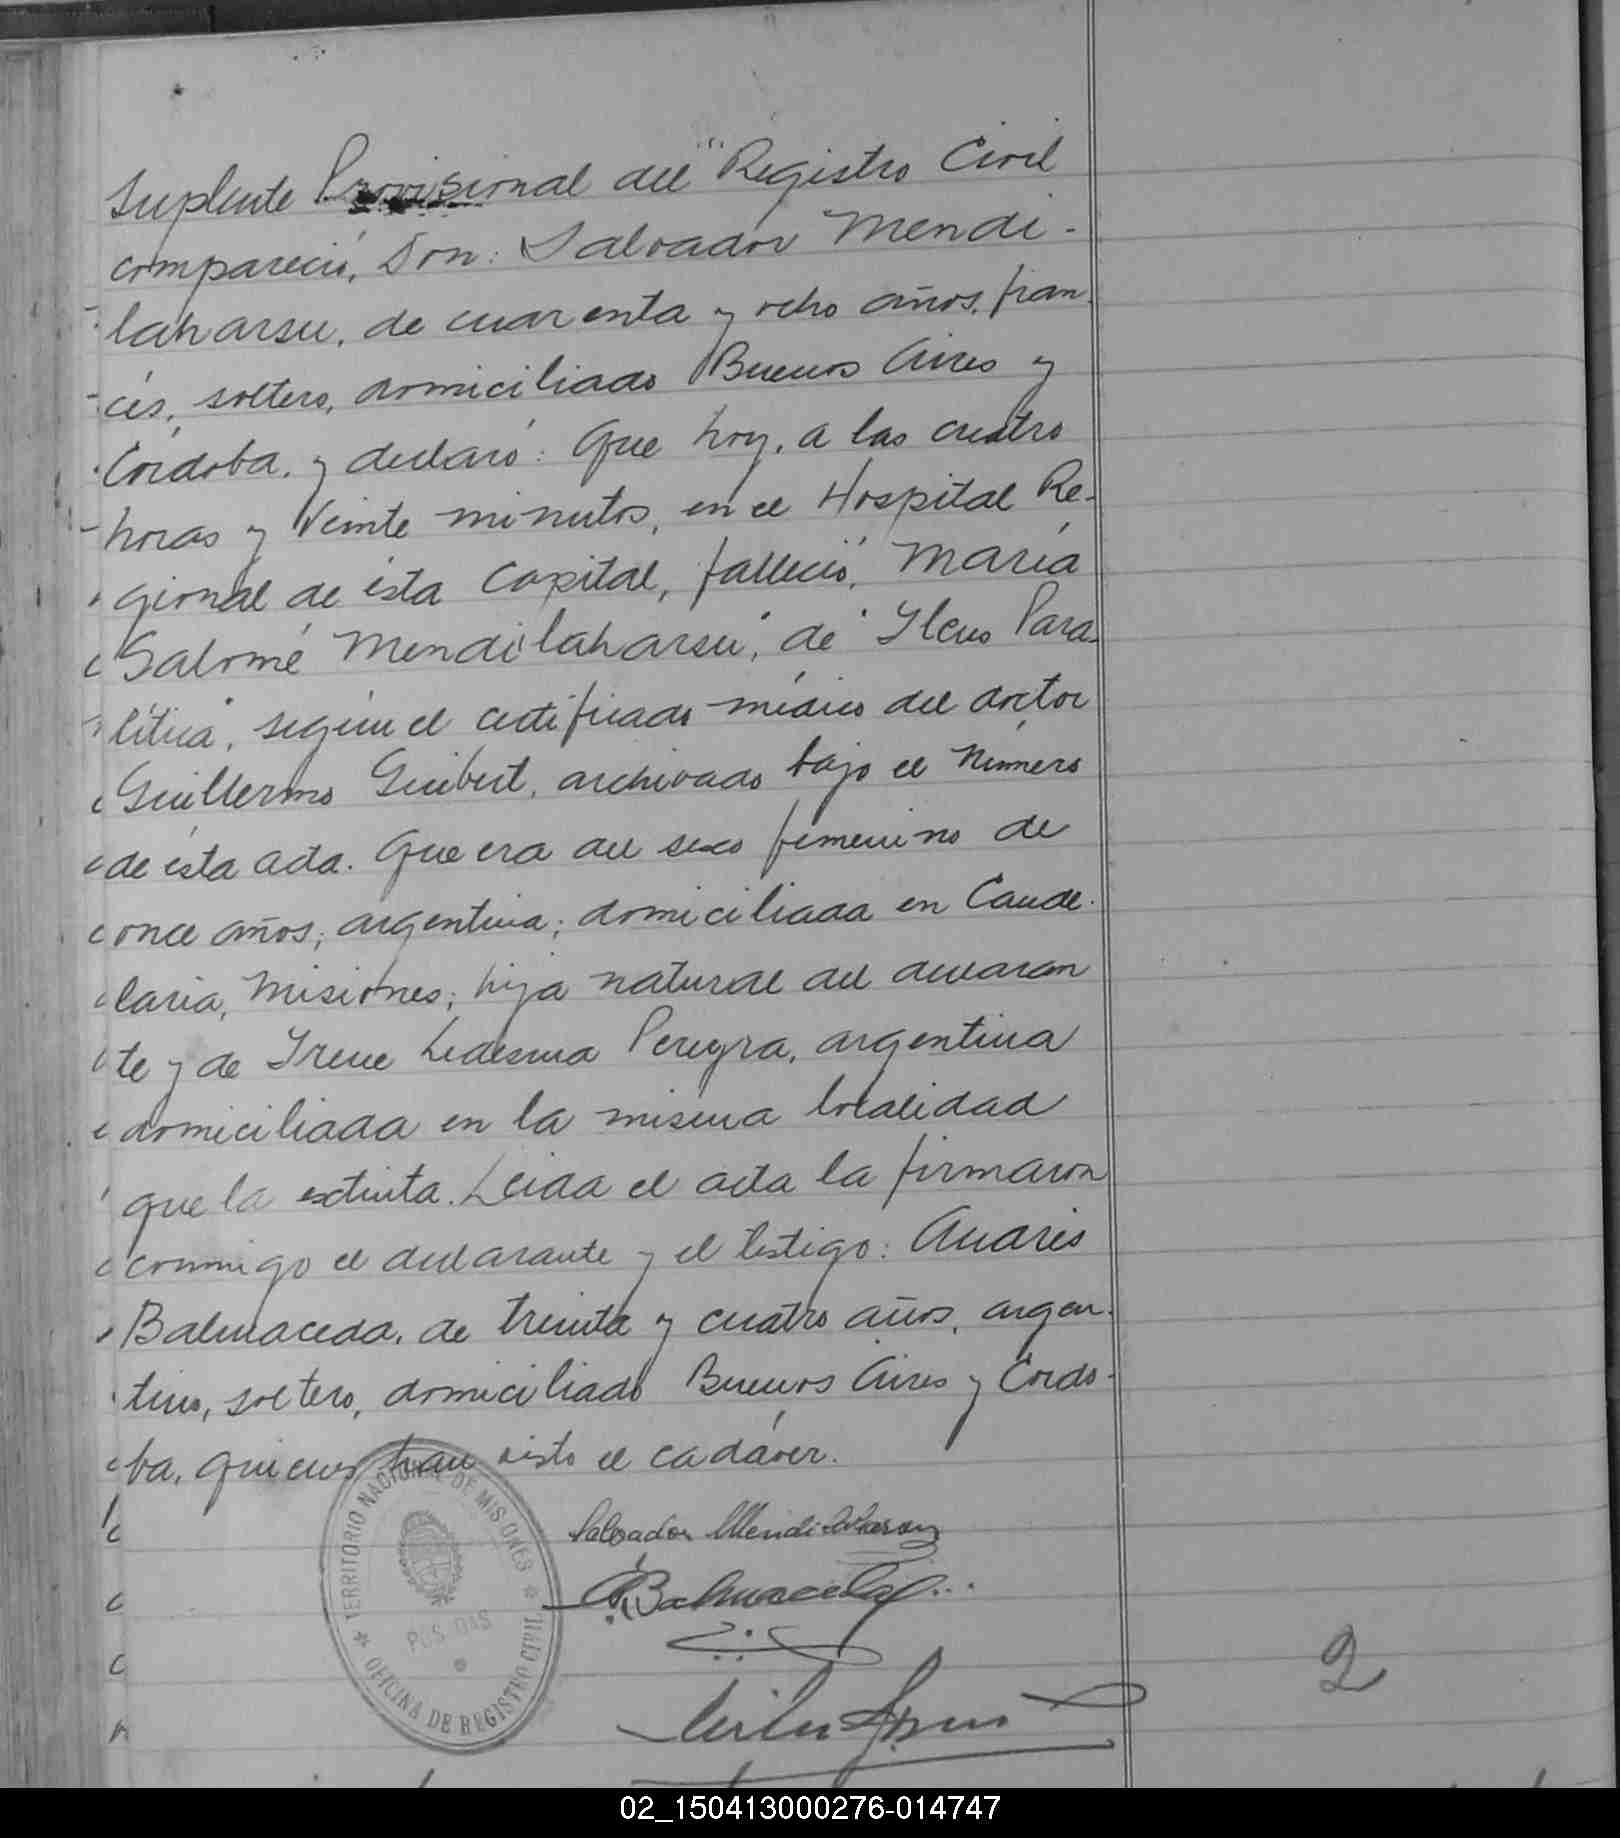 Suplente Provisional del Registro Civil
compareció, Don: Salvador Mendi-
laharsu, de cuarenta y ocho años, fran-
cés, soltero, domiciliado Buenos Aires y
Córdoba, y declaró: Que hoy, a las cuatro
horas y veinte minutos, en el Hospital Re-
gional de ésta Capital, falleció, María
Salomé Mendilaharsu, de "Ileus Para-
lítica", según el certificado médico del doctor
Guillermo Guibert, archivado bajo el número
de ésta acta. Que era del sexo femenino de
once años; argentina; domiciliada en Cande-
laria, Misiones; hija natural del declaran
te y de Irene Ledesma Pereyra, argentina
domiciliada en la misma localidad
que la extinta. Leída el acta la firmaron
conmigo el declarante y el testigo:
Balmaceda, de treinta y cuatro años, argen-
tino, soltero, domiciliado Buenos Aires y Córdo-
ba, quienes han visto el cadáver.
TERRITORIO NACIONAL DE MISIONES
POSADAS
OFICINA DE REGISTRO CIVIL
Salvador Mendilaharsu
Balmaceda
2
02_150413000276-014747